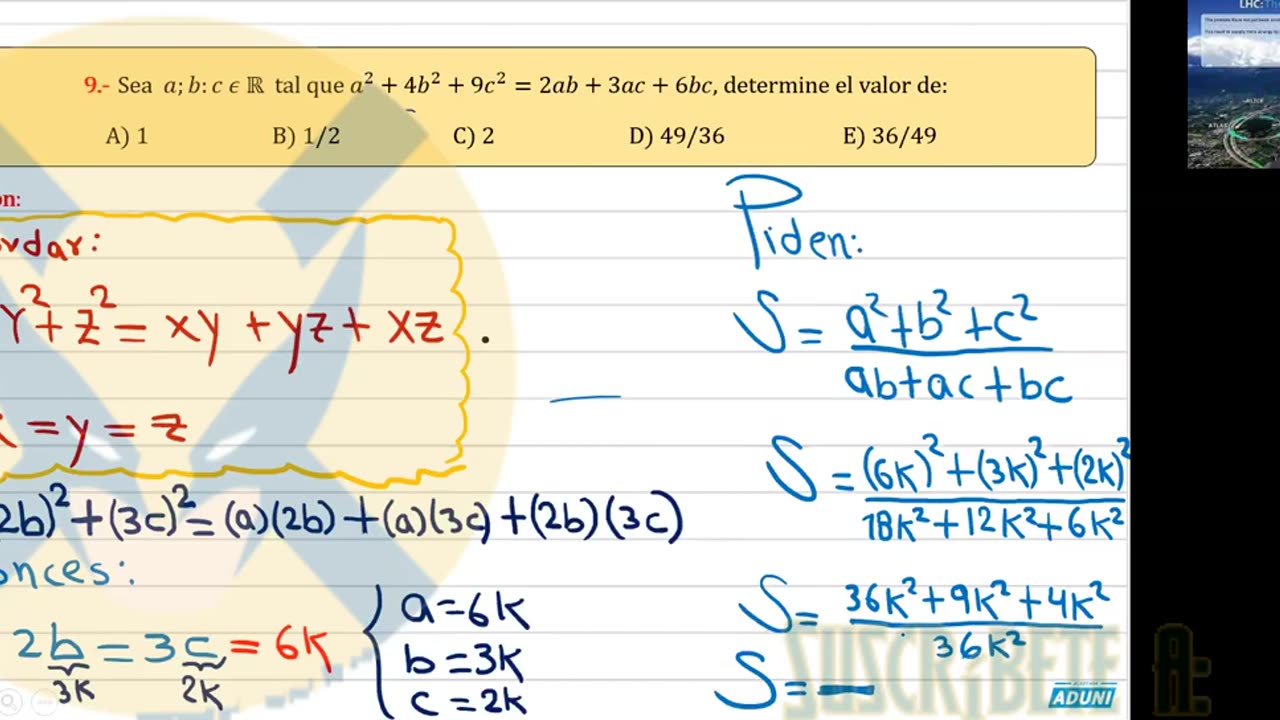 9.- Sea a; b: c ϵ ℝ tal que a² + 4b² + 9c² = 2ab + 3ac + 6bc, determine el valor de:
A) 1 B) 1/2 C) 2 D) 49/36 E) 36/49
on:
rdar:
Y² + Z² = XY + YZ + XZ
= Y = Z
2b)² + (3c)² = (a)(2b) + (a)(3c) + (2b)(3c)
onces:
2b = 3c = 6K
3K 2K
a = 6K
b = 3K
c = 2K
Piden:
S = a² + b² + c² / ab + ac + bc
S = (6K)² + (3K)² + (2K)² / 18K² + 12K² + 6K²
S = 36K² + 9K² + 4K² / 36K²
S =
SUSCRÍBETE A:
ADUNI
LHC:
ALICE
ATLAS